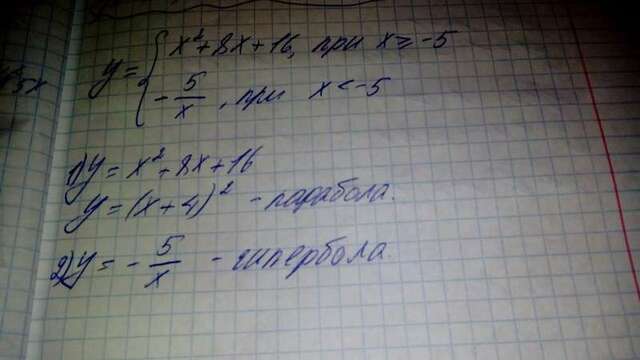 y = { x² + 8x + 16, при x ≥ -5
- 5/x, при x < -5
1) y = x² + 8x + 16
y = (x + 4)² - парабола.
2) y = - 5/x - гипербола.